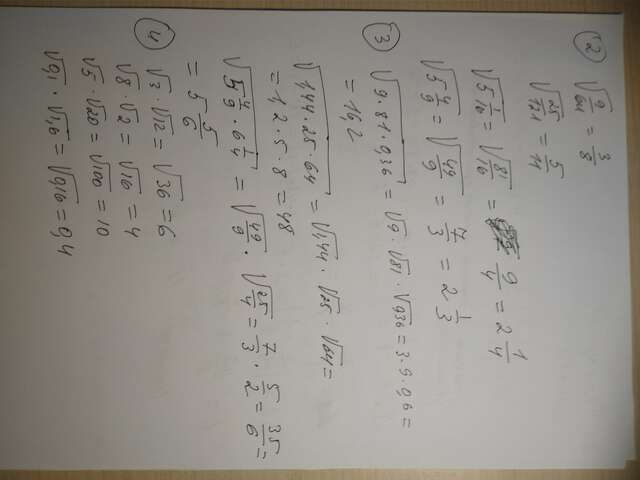 2) √9/64 = 3/8
√25/121 = 5/11
√5 1/16 = √81/16 = 9/4 = 2 1/4
√5 4/9 = √49/9 = 7/3 = 2 1/3
3) √9·81·0,36 = √9 · √81 · √0,36 = 3·9·0,6 =
= 16,2
√144·25·64 = √144 · √25 · √64 =
= 12·5·8 = 48
√5 4/9 · 6 1/4 = √49/9 · √25/4 = 7/3 · 5/2 = 35/6 =
= 5 5/6
4) √3 · √12 = √36 = 6
√8 · √2 = √16 = 4
√5 · √20 = √100 = 10
√0,1 · √1,6 = √0,16 = 0,4